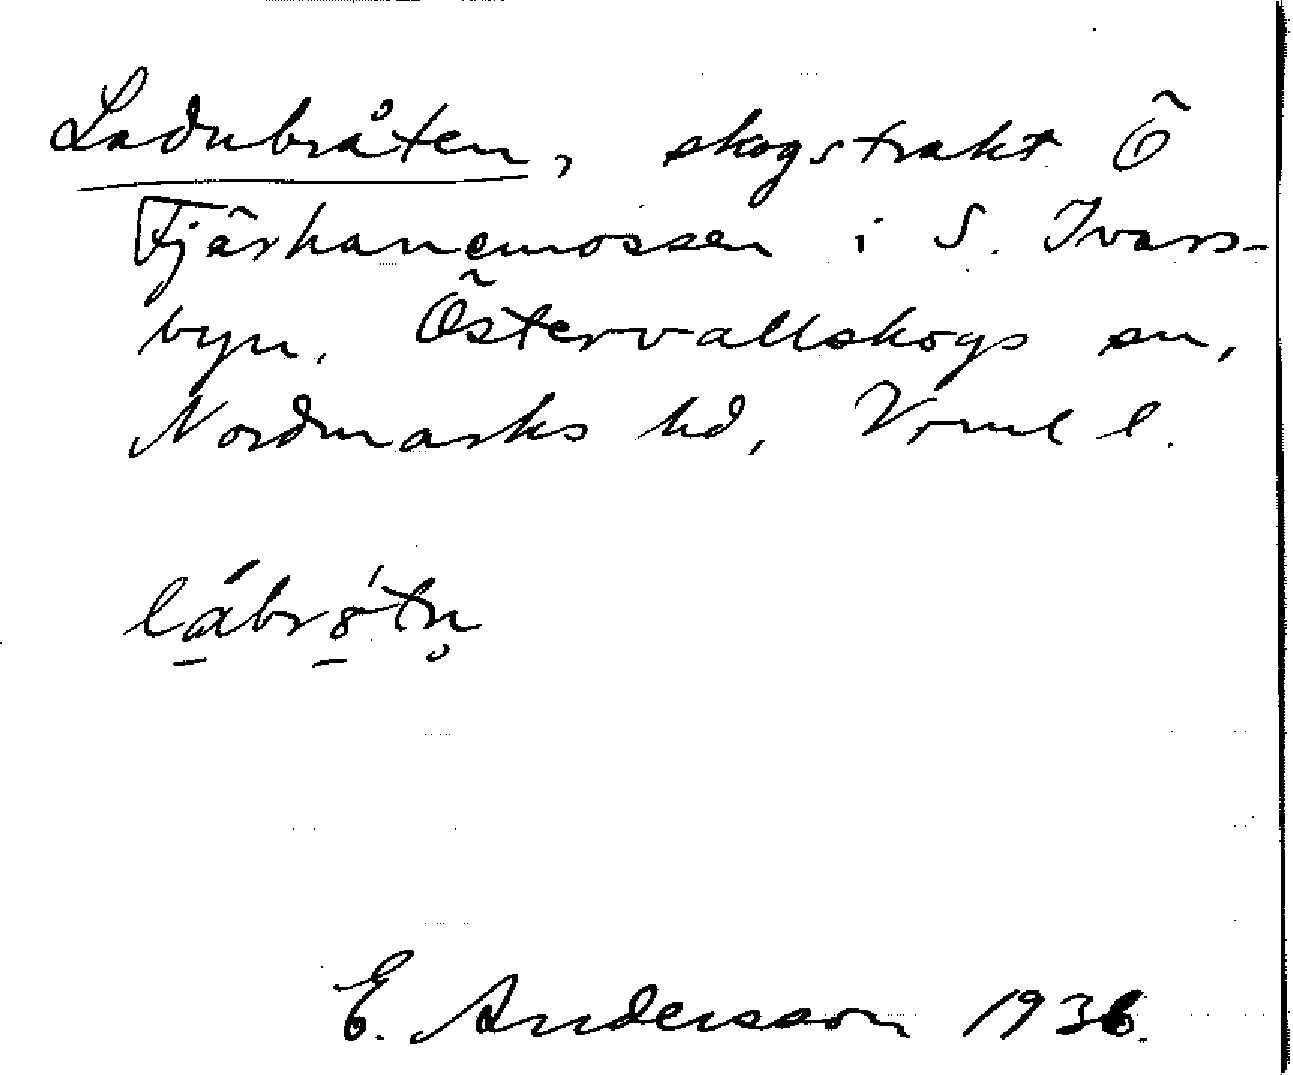 Ladubråten, skogstrakt Ö
Fjärhanemossen i S. Ivars-
byn. Östervallskogs sn,
Nordmarks hd, Vrml l.
lábrǿtn̥
E. Andersson 1936.